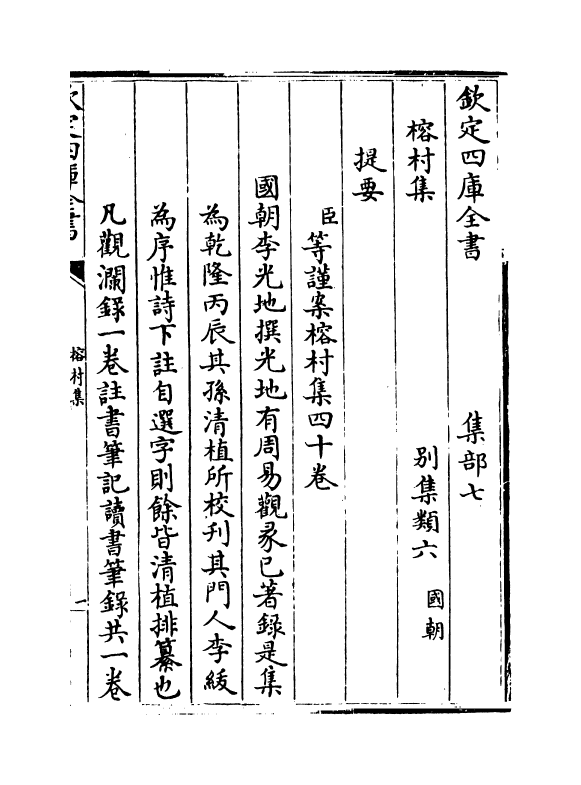 欽定四庫全書　集部七
榕村集　別集類六國朝
提要
臣等謹案榕村集四十卷
國朝李光地撰光地有周易觀彖已著錄是集
為乾隆丙辰其孫清植所校刊其門人李紱
為序惟詩下註自選字則餘皆清植排纂也
凡觀瀾錄一卷註書筆記讀書筆錄共一卷
欽定四庫全書
榕村集
一